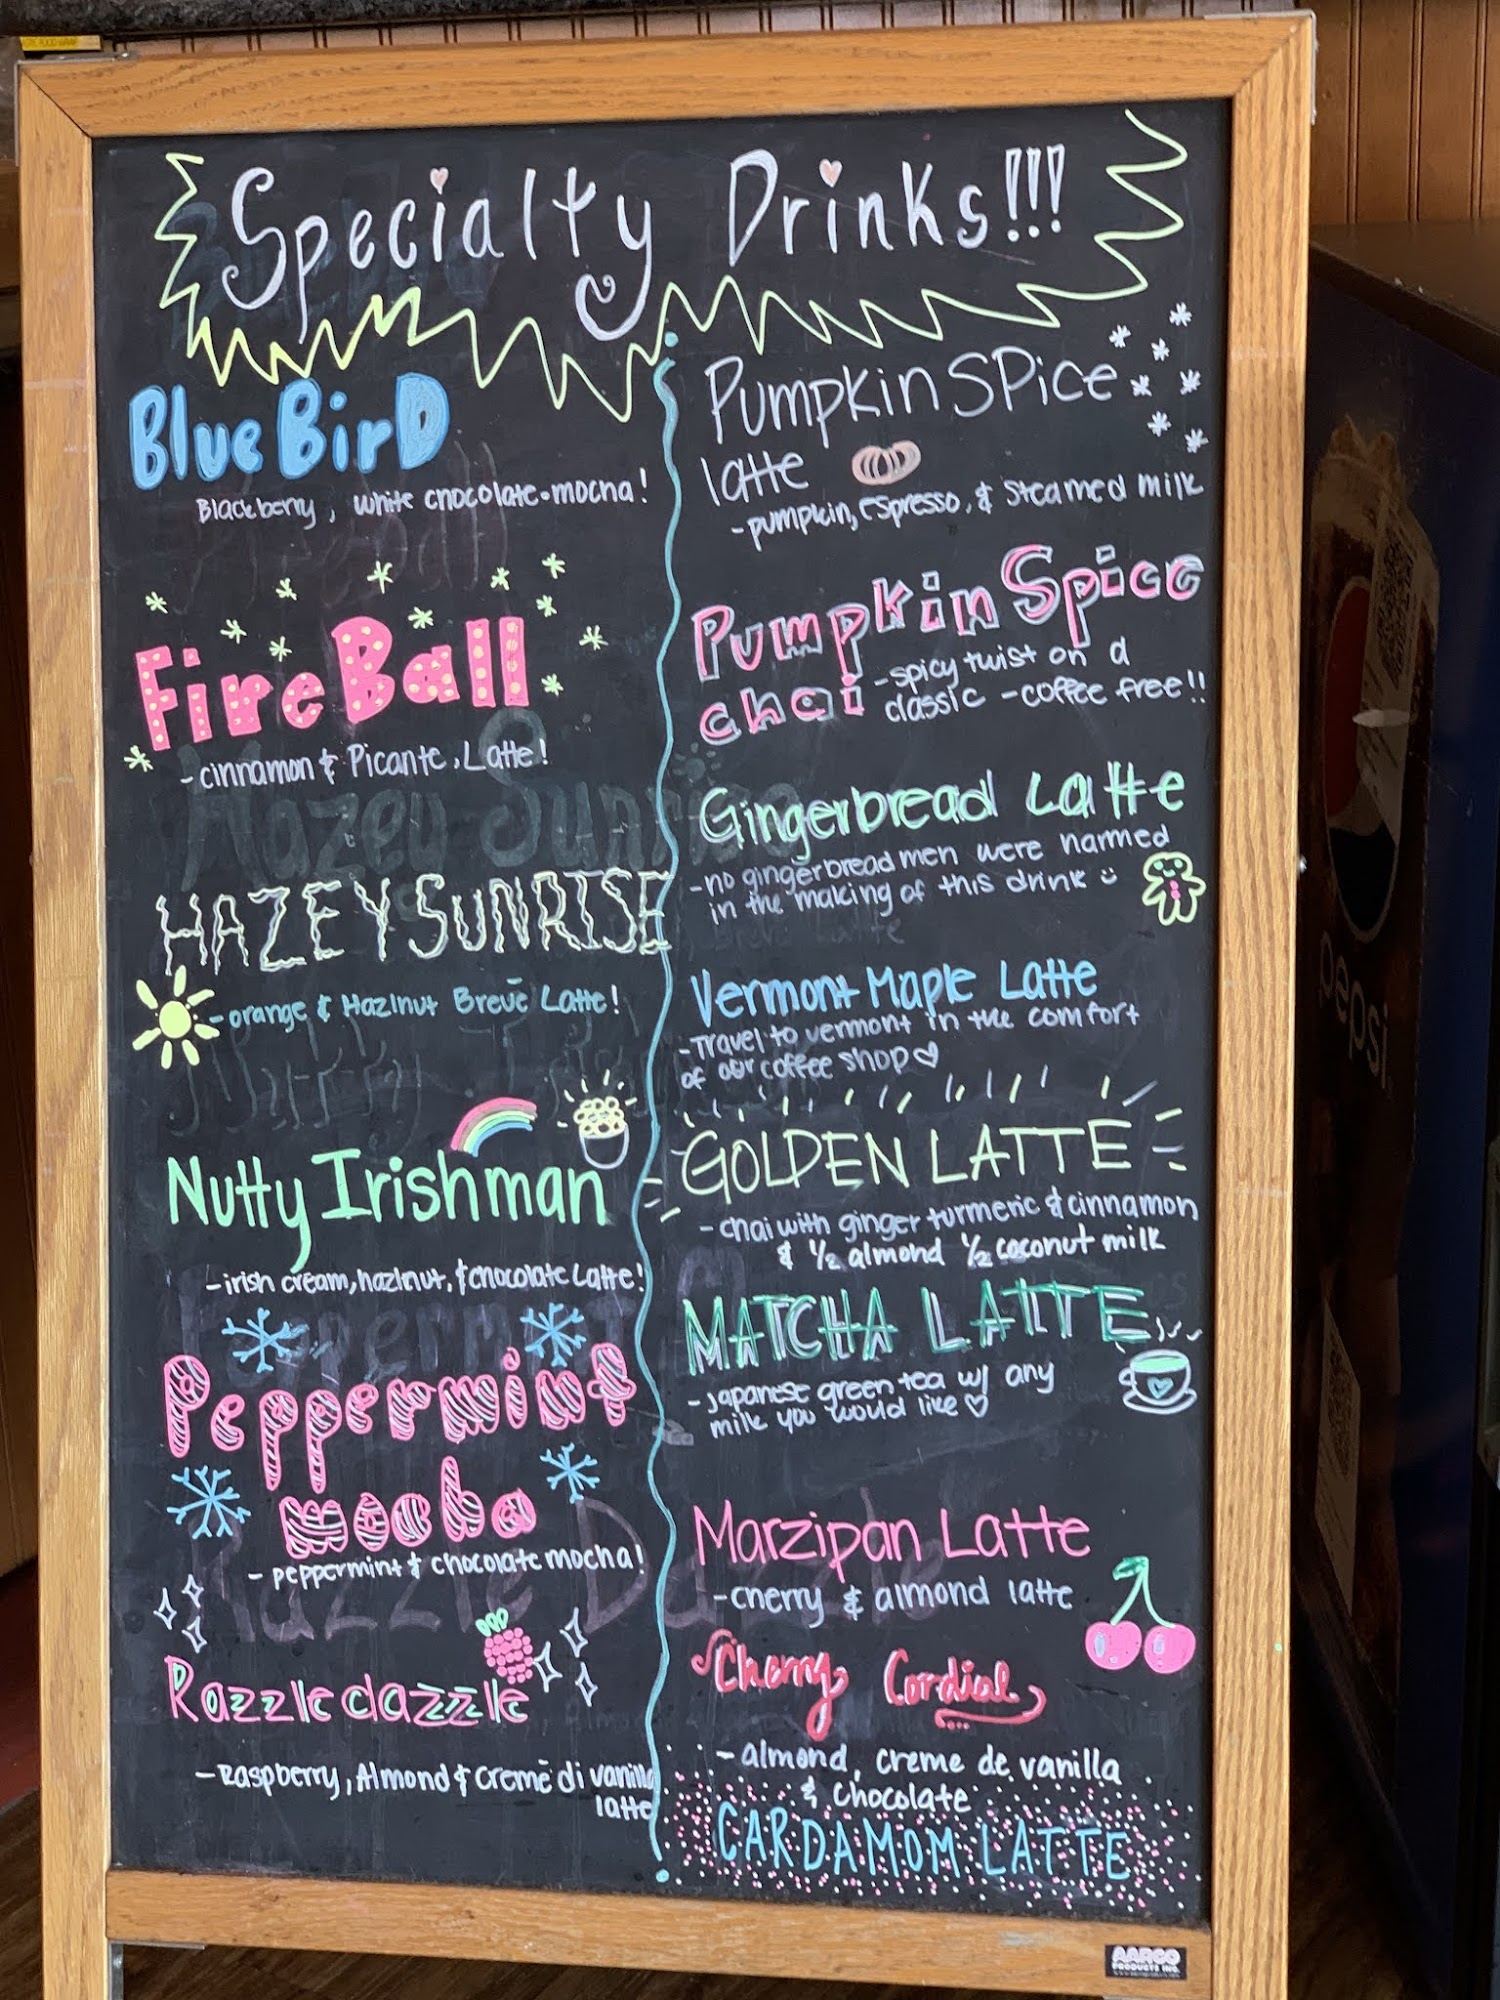 Specialty Drinks!!!
BlueBirD
Blackberry, white chocolate mocha!
FireBall
- cinnamon & Picante, Latte!
HAZEY SUNRISE
- orange & Hazlnut Brevē Latte!
Nutty Irishman
- irish cream, hazlnut, & chocolate Latte!
Peppermint
mocha
- peppermint & chocolate mocha!
Razzle dazzle
- Raspberry, Almond & cremē di vanilla
latte
Pumpkin SPice
latte
- pumpkin, espresso, & steamed milk
Pumpkin Spice
chai - spicy twist on a
classic - coffee free!!
Gingerbread Latte
- no gingerbread men were narmed
in the making of this drink
Vermont Maple Latte
- Travel to vermont in the comfort
of our coffee shop
GOLDEN LATTE
- chai with ginger turmeric & cinnamon
& 1/2 almond 1/2 coconut milk
MATCHA LATTE
- Japanese green tea w/ any
milk you would like
Marzipan Latte
- cherry & almond latte
Cherry Cordial
- almond, creme de vanilla
& chocolate
CARDAMOM LATTE
pepsi
AARCO
PRODUCTS INC.